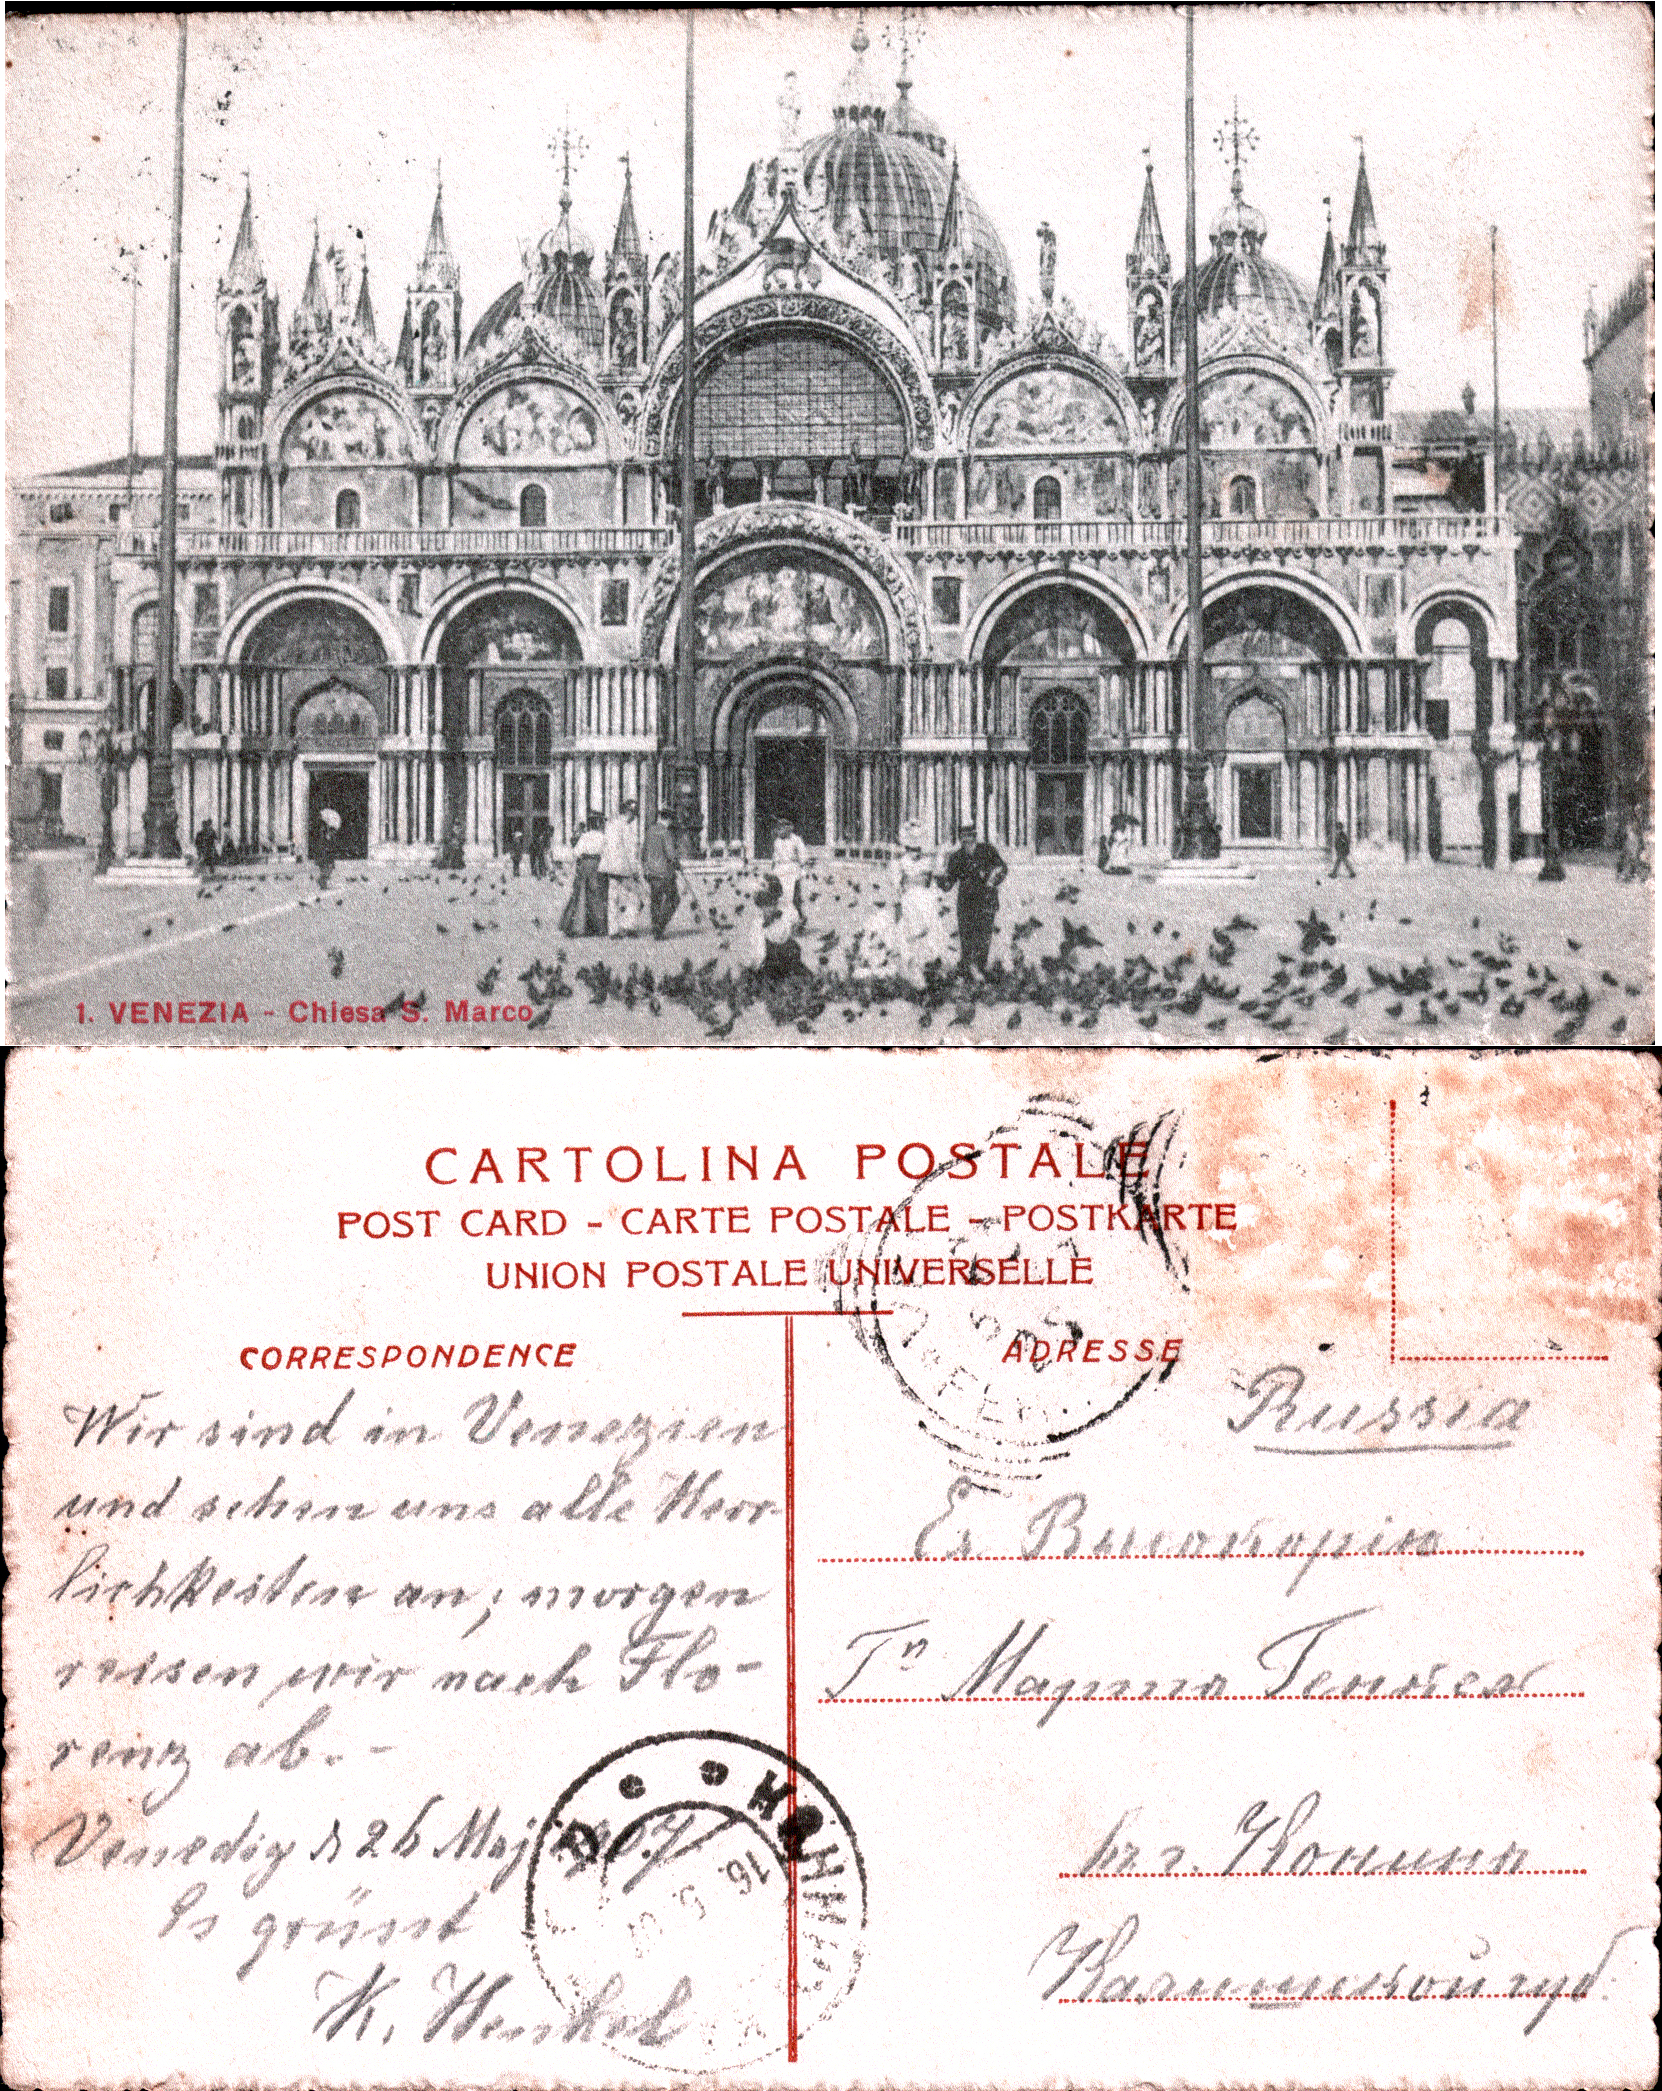 1. VENEZIA - Chiesa S. Marco
CARTOLINA POSTALE
POST CARD - CARTE POSTALE - POSTKARTE
UNION POSTALE UNIVERSELLE
CORRESPONDENCE
ADRESSE
Wir sind in Venezien
und sehen uns alle Herr-
lichkeiten an; morgen
reisen wir nach Flo-
renz ab. -
Venedig d 26 Maj 1907
Es grüsst
K. Henkel
Russia
Ея
Гⁿ Марта Генкель
въ г. Конинъ
Калишской губ.